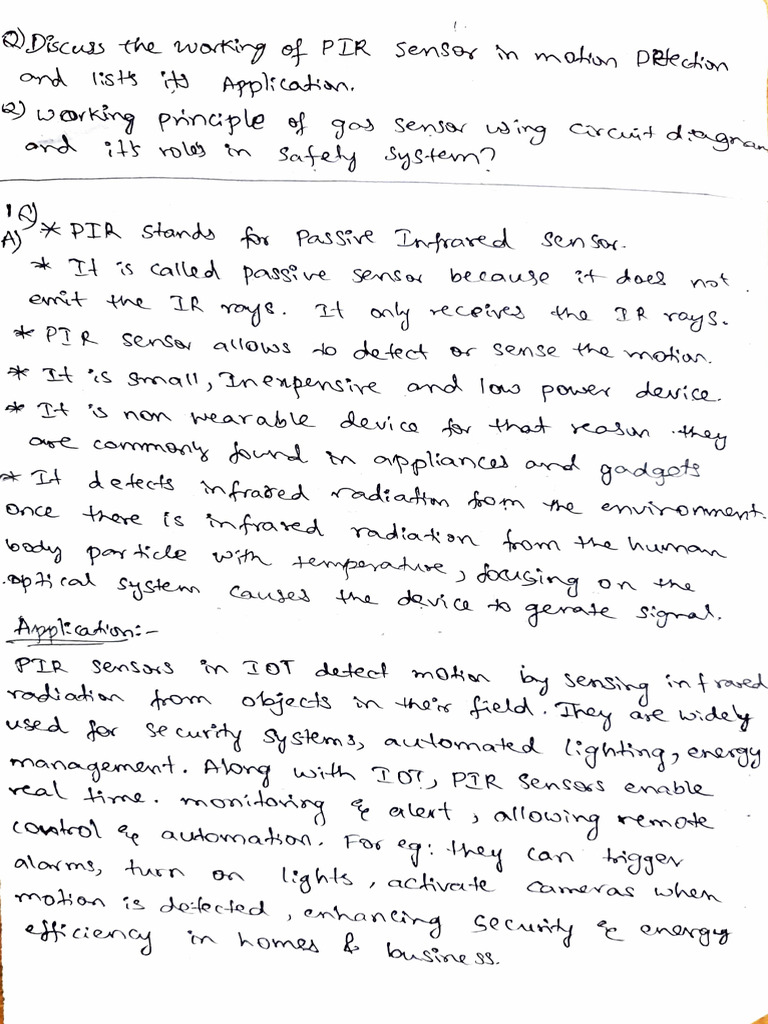 Q) Discuss the working of PIR sensor in motion Detection
and lists its Application.
Q) working principle of gas sensor using circuit diagram
and it's roles in safety system?
1Q)
A) * PIR stands for Passive Infrared sensor.
* It is called passive sensor because it does not
emit the IR rays. It only receives the IR rays.
* PIR sensor allows to detect or sense the motion.
* It is small, Inexpensive and low power device.
* It is non wearable device for that reason they
are commonly found in appliances and gadgets
* It detects infrared radiation from the environment.
once there is infrared radiation from the human
body particle with temperature, focusing on the
optical system causes the device to gerate signal.
Application:-
PIR sensors in IOT detect motion by sensing infrared
radiation from objects in their field. They are widely
used for security systems, automated lighting, energy
management. Along with IOT, PIR sensors enable
real time. monitoring & alert, allowing remote
control & automation. For eg: they can trigger
alarms, turn on lights, activate cameras when
motion is detected, enhancing security & energy
efficiency in homes & business.